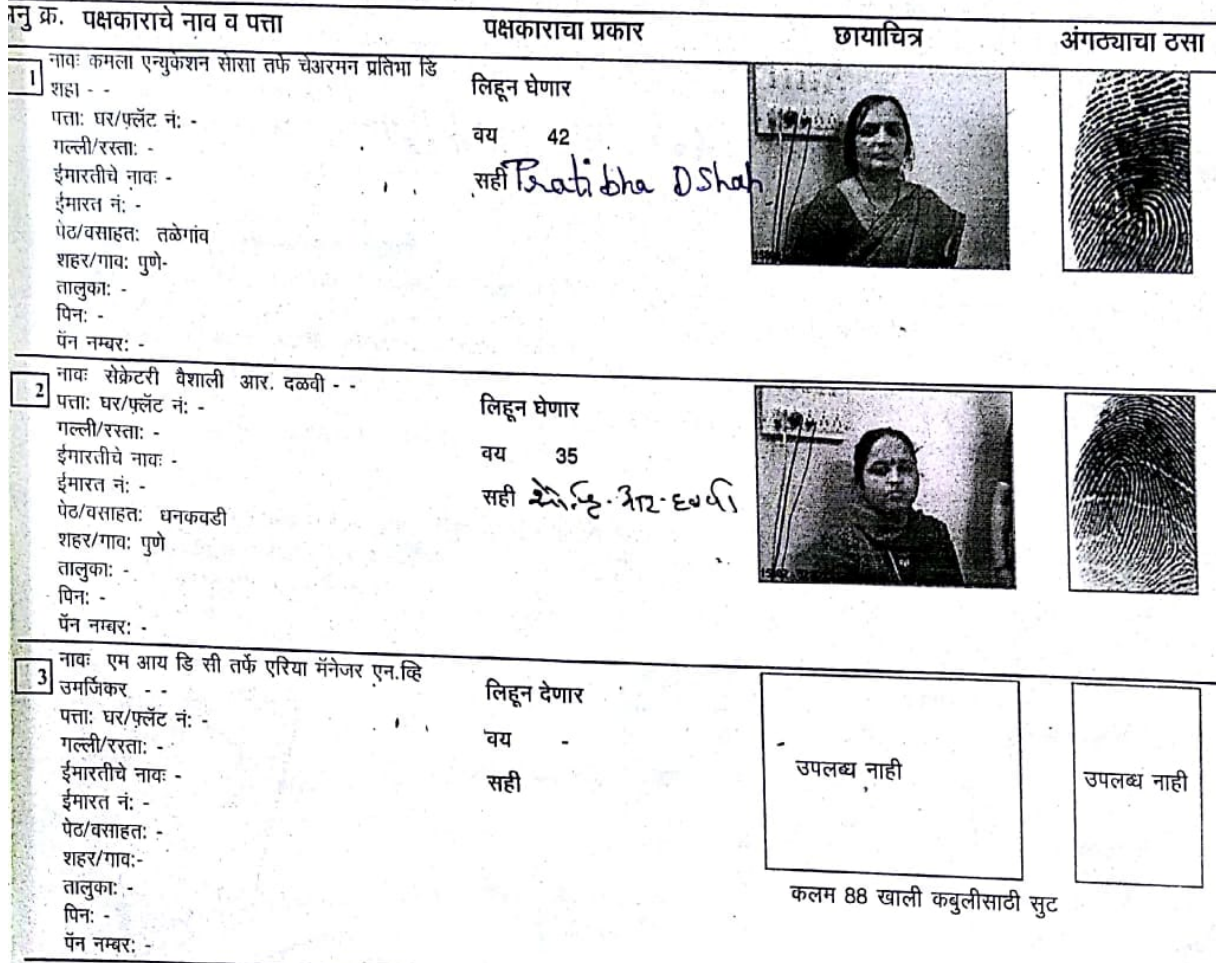 नु क्र. पक्षकाराचे नाव व पत्ता पक्षकाराचा प्रकार छायाचित्र अंगठ्याचा ठसा
1 नावः कमला एन्युकेशन सोसा तर्फे चेअरमन प्रतिभा डि
शहा - -
पत्ता: घर/फ्लॅट नं: -
गल्ली/रस्ता: -
ईमारतीचे नावः -
ईमारत नं: -
पेठ/वसाहत: तळेगांव
शहर/गाव: पुणे-
तालुका: -
पिन: -
पॅन नम्बर: -
लिहून घेणार
वय 42
सही Pratibha D Shah
2 नावः सेक्रेटरी वैशाली आर. दळवी - -
पत्ता: घर/फ्लॅट नं: -
गल्ली/रस्ता: -
ईमारतीचे नावः -
ईमारत नं: -
पेठ/वसाहत: धनकवडी
शहर/गाव: पुणे
तालुका: -
पिन: -
पॅन नम्बर: -
लिहून घेणार
वय 35
सही
3 नावः एम आय डि सी तर्फे एरिया मॅनेजर एन.व्हि
उमर्जिकर - -
पत्ता: घर/फ्लॅट नं: -
गल्ली/रस्ता: -
ईमारतीचे नावः -
ईमारत नं: -
पेठ/वसाहत: -
शहर/गाव:-
तालुका: -
पिन: -
पॅन नम्बर: -
लिहून देणार
वय -
सही
उपलब्ध नाही
उपलब्ध नाही
कलम 88 खाली कबुलीसाठी सुट